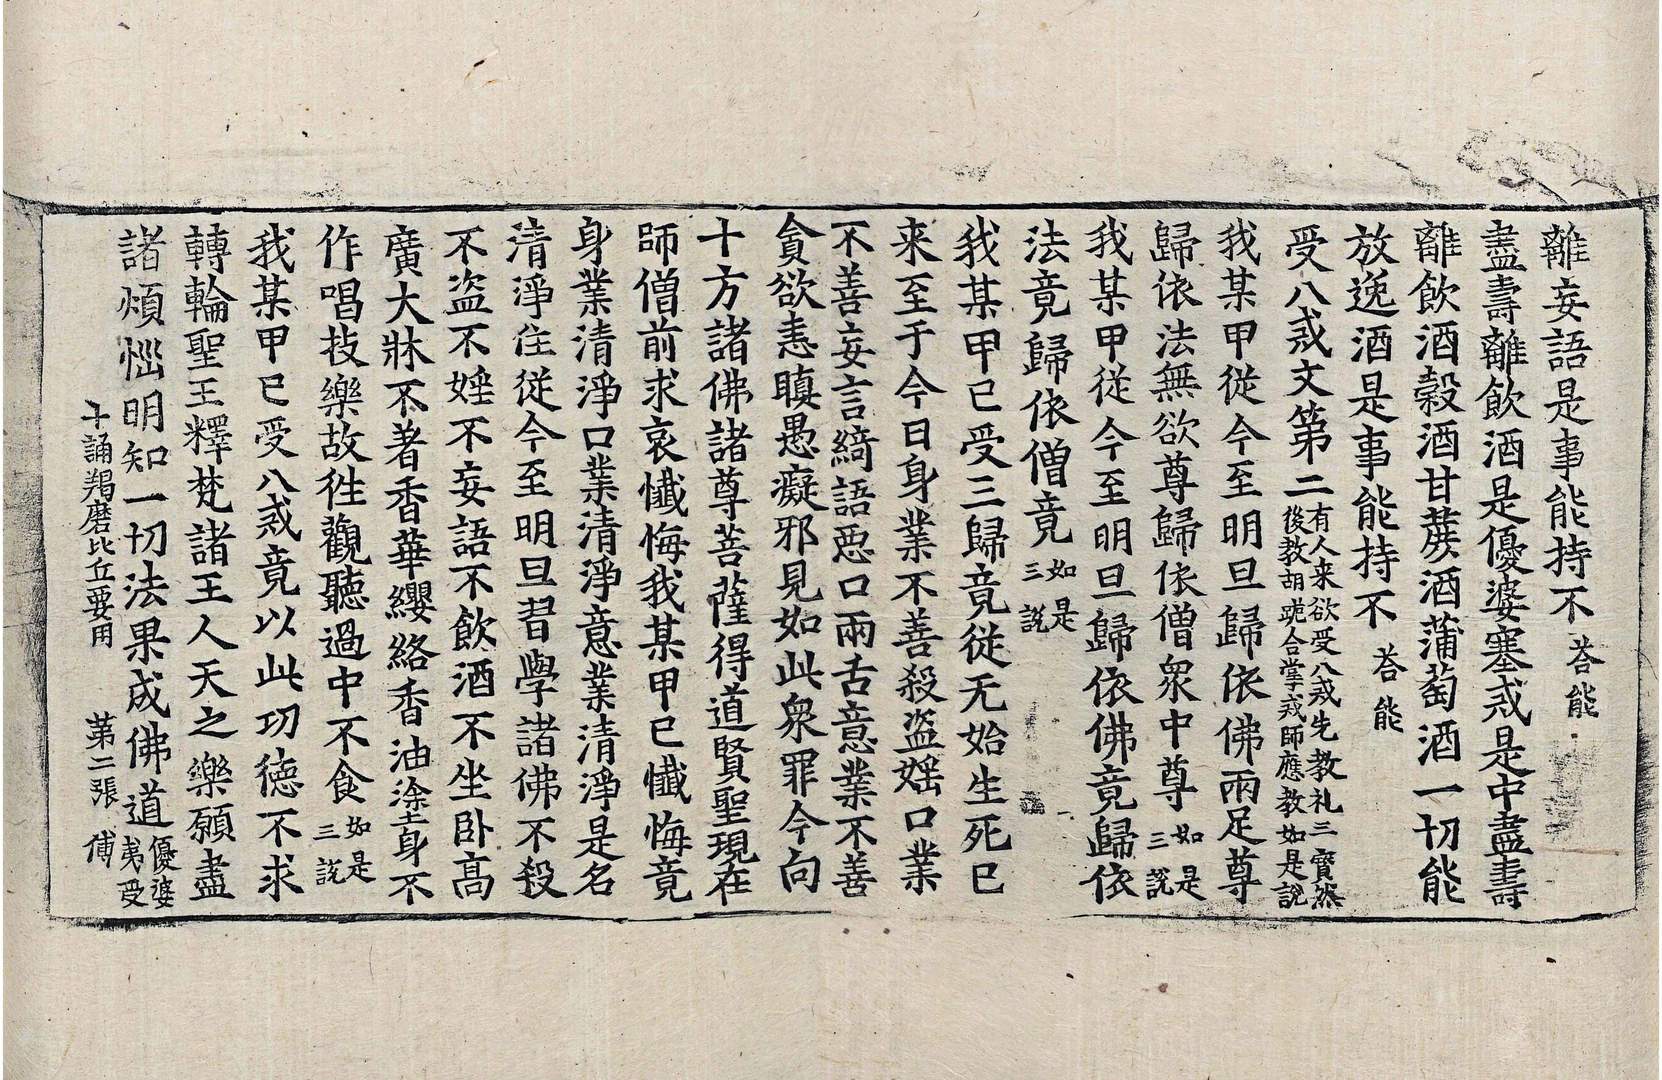 離妄語是事能持不答能
盡壽離飲酒是優婆塞戒是中盡壽
離飲酒穀酒甘蔗酒蒲萄酒一切能
放逸酒是事能持不答能
受八戒文第二有人来欲受八戒先教礼三寳然後教胡跪合掌戒師應教如是說
我某甲從今至明旦歸依佛兩足尊
歸依法無欲尊歸依僧衆中尊如是三說
我某甲從今至明旦歸依佛竟歸依
法竟歸依僧竟如是三說
我某甲已受三歸竟從无始生死已
来至于今日身業不善殺盗婬口業
不善妄言綺語惡口兩舌意業不善
貪欲恚瞋愚癡邪見如此衆罪今向
十方諸佛諸尊菩薩得道賢聖現在
師僧前求哀懺悔我某甲已懺悔竟
身業清淨口業清淨意業清淨是名
清淨住從今至明旦習學諸佛不殺
不盗不婬不妄語不飲酒不坐卧高
廣大牀不著香華纓絡香油塗身不
作唱技樂故往觀聽過中不食如是三說
我某甲已受八戒竟以此功德不求
轉輪聖王釋梵諸王人天之樂願盡
諸煩惱明知一切法果成佛道優婆夷受
十誦羯磨比丘要用 第二張 傅